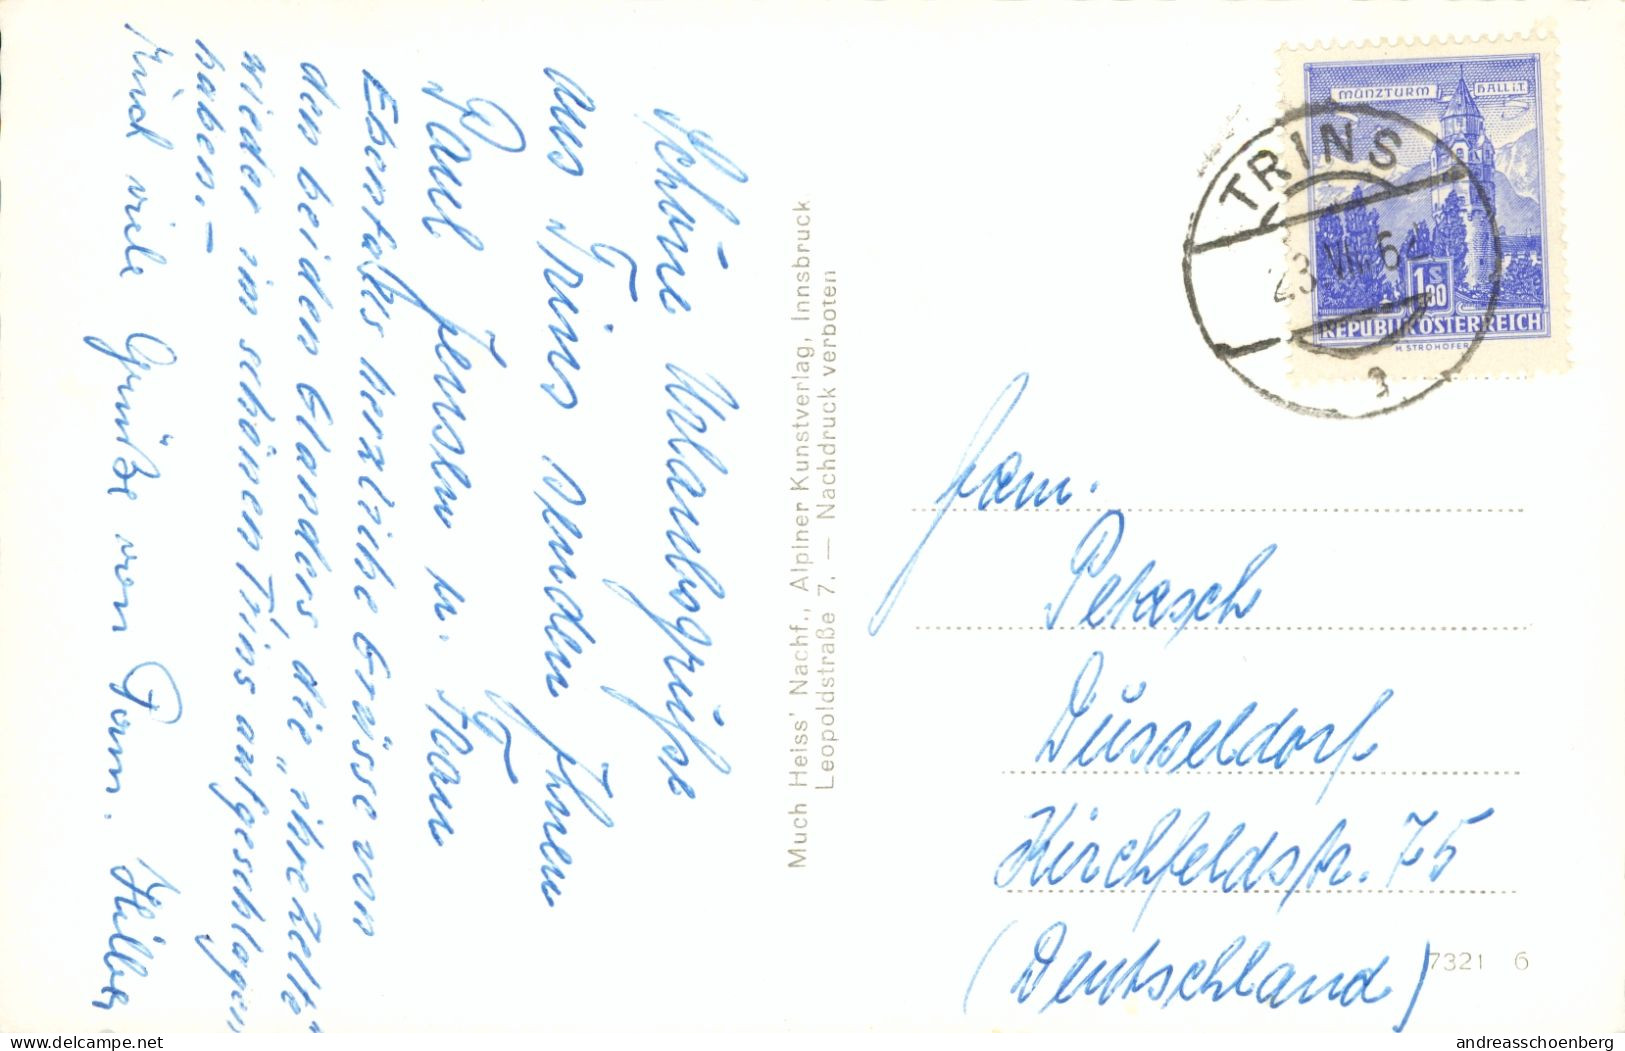 Schöne Urlaubsgrüße
aus Trins senden Ihnen
Paul Jensen u. Frau
Ebenfalls herzliche Grüsse von
den beiden Elanders, die „ihre Zelte"
wieder im schönen Trins aufgeschlagen
haben.–
Und viele Grüße von Fam. Hilber
Much Heiss' Nachf., Alpiner Kunstverlag, Innsbruck
Leopoldstraße 7. — Nachdruck verboten
MÜNZTURM HALL i.T.
1S80
REPUBLIK ÖSTERREICH
H. STROHOFER
TRINS
23.VII.6
a
Fam.
Petasch
Düsseldorf
Kirchfeldstr. 75
(Deutschland)
7321 6
andreasschoenberg
hip_post.com